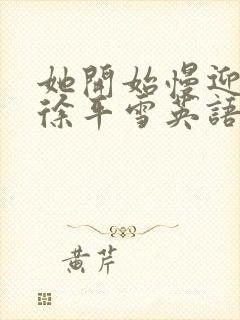 她開始慢迎
徐平雪英語
黃芹